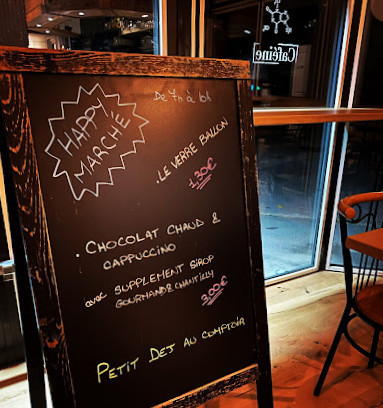 Caféine
De 7h à 10h
HAPPY
MARCHÉ
. LE VERRE BALLON
1.30€
. CHOCOLAT CHAUD &
CAPPUCCINO
avec SUPPLEMENT SIROP
GOURMAND & CHANTILLY
3.00€
PETIT DEJ AU COMPTOIR